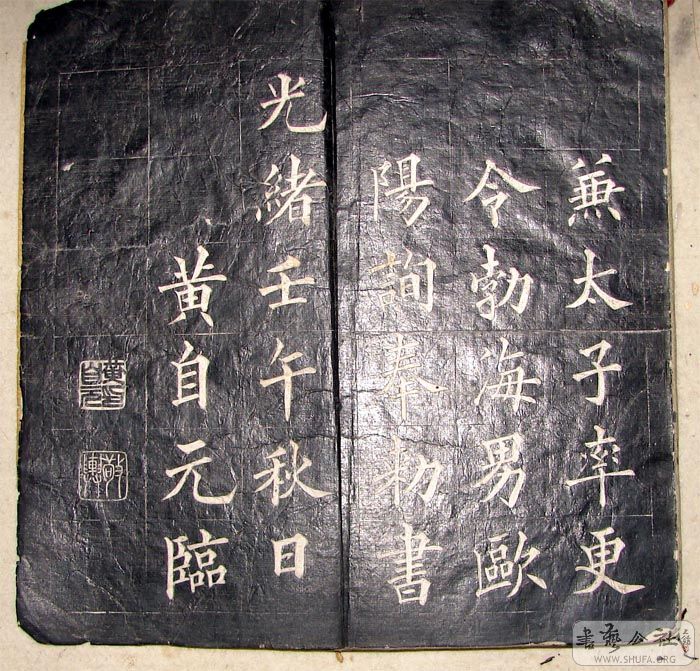 兼太子率更
令勃海男歐
陽詢奉勑書
光緒壬午秋日
黄自元臨
黃自元印
敬輿
書藝公社
WWW.SHUFA.ORG